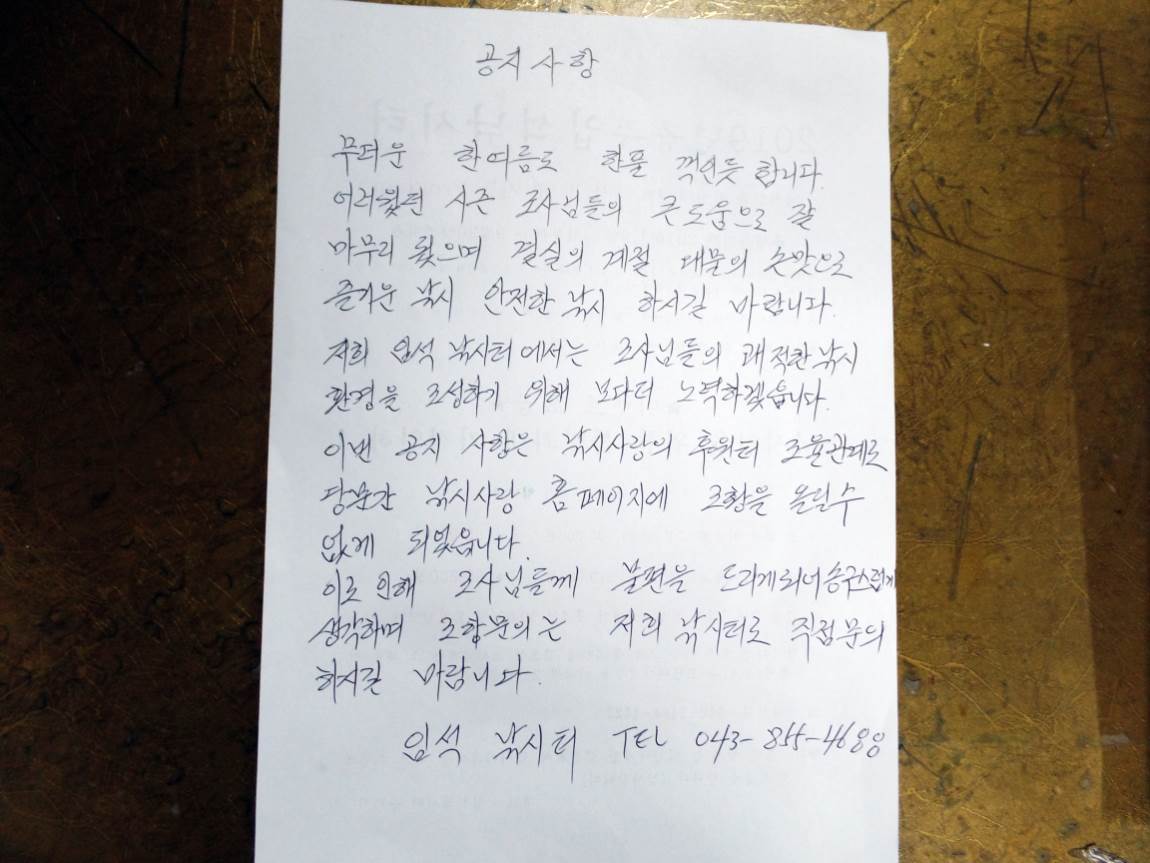 공지 사항
무더운 한여름도 한풀 꺽인듯 합니다.
어려웠던 시즌 조사님들의 큰도움으로 잘
마무리 됬으며 결실의 계절 대물의 손맛으로
즐거운 낚시 안전한 낚시 하시길 바랍니다.
저희 임석 낚시터에서는 조사님들의 쾌적한 낚시
환경을 조성하기 위해 보다더 노력하겠습니다.
이번 공지 사항은 낚시사랑의 후원터 조율관계로
당분간 낚시사랑 홈페이지에 조황을 올릴수
없게 되었습니다.
이로 인해 조사님들께 불편을 드리게되어 송구스럽게
생각하며 조황문의는 저희 낚시터로 직접문의
하시길 바랍니다.
임석 낚시터 TEL 043-855-4680